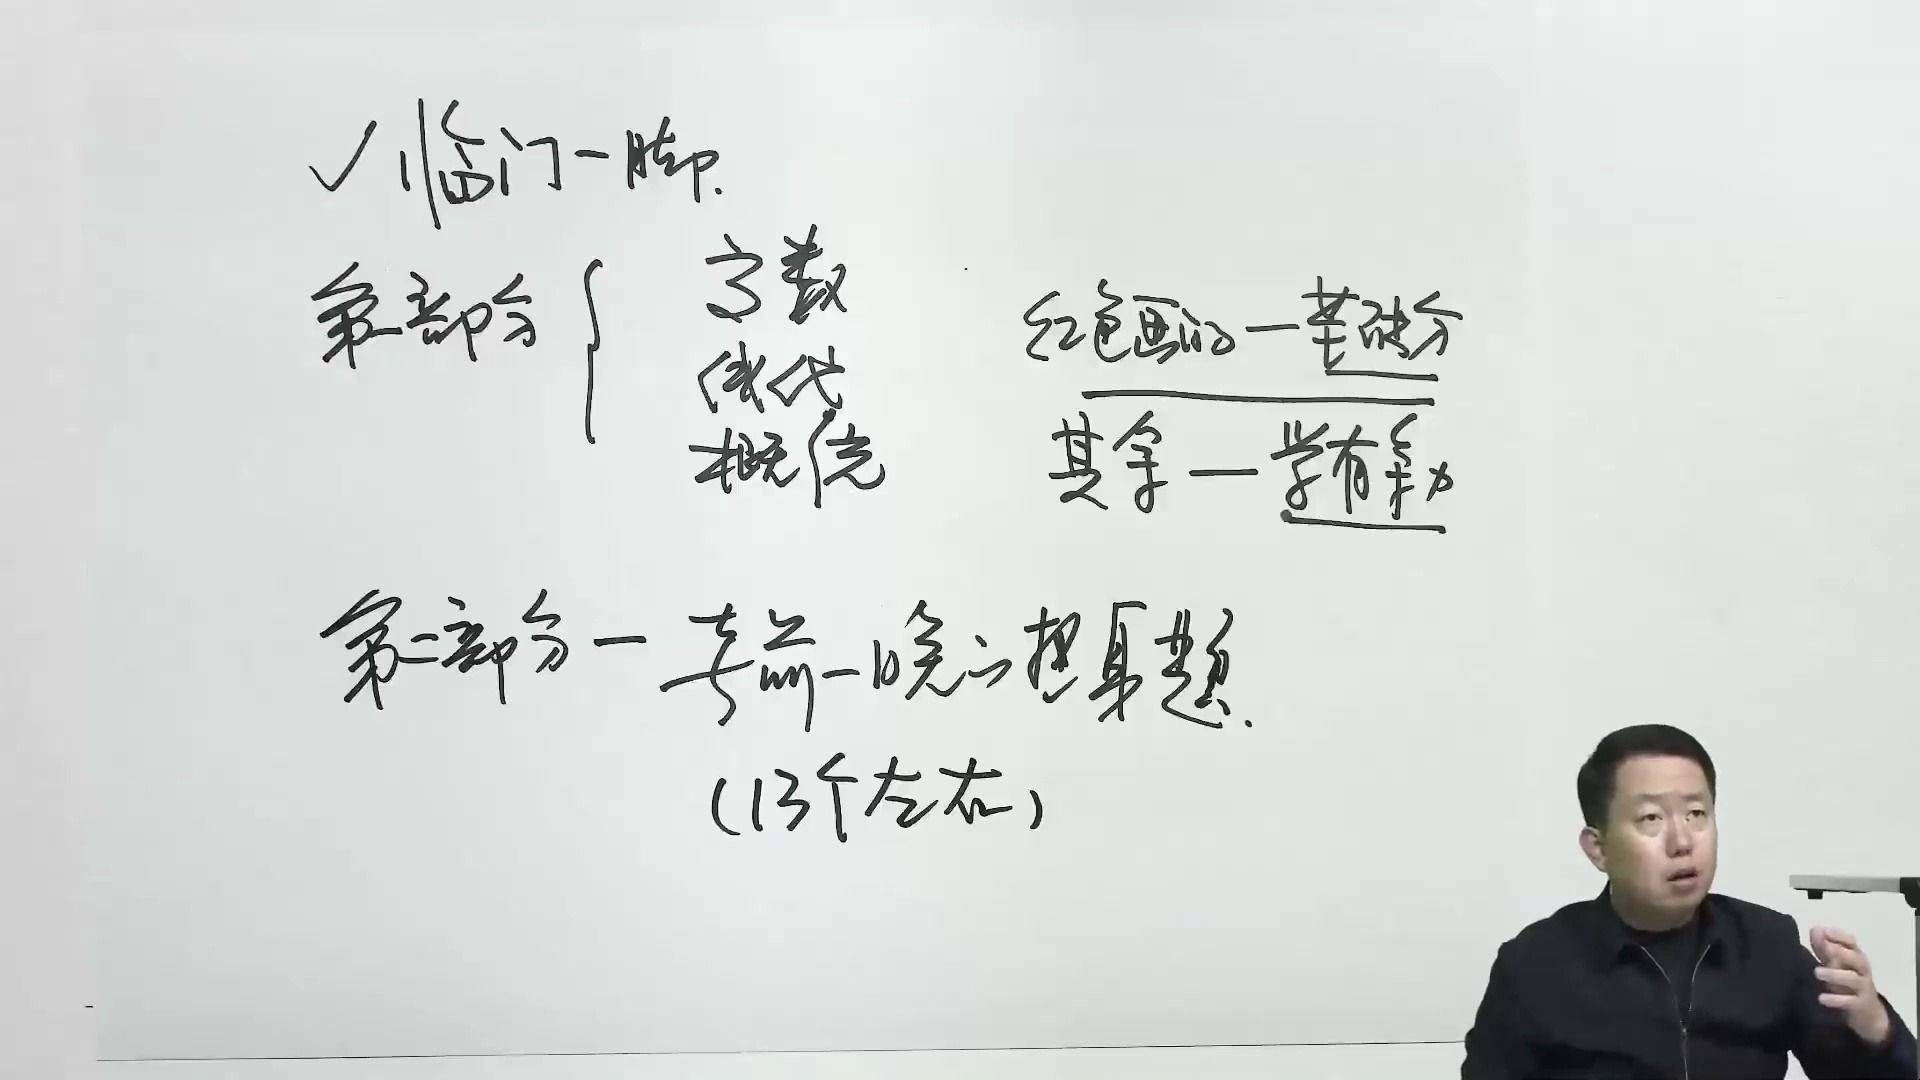 ✓临门一脚.
第一部分{
高数
线代
概统
红色画的—基础分
其余—学有余力
第二部分—考前一晚的押题.
(13个左右)